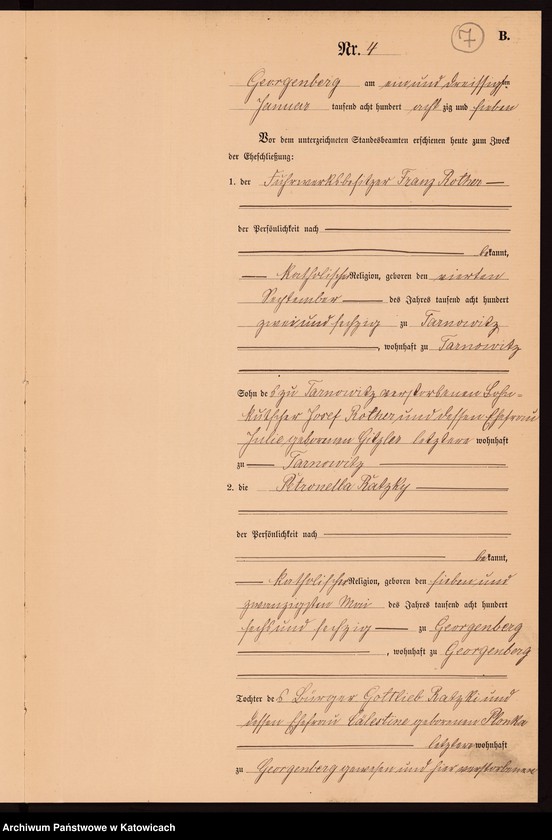 7
B.
Nr. 4
Georgenberg am ein und dreissigsten
Januar tausend acht hundert acht zig und sieben
Vor dem unterzeichneten Standesbeamten erschienen heute zum Zweck
der Eheschließung:
1. der Fuhrwerksbesitzer Franz Rother
der Persönlichkeit nach
bekannt,
katholischer Religion, geboren den vierten
September des Jahres tausend acht hundert
zwei und sechzig zu Tarnowitz
, wohnhaft zu Tarnowitz
Sohn des zu Tarnowitz verstorbenen Lohn-
kutscher Josef Rother und dessen Ehefrau
Julie geborenen letztere wohnhaft
zu Tarnowitz
2. die Petronella Ratzky
der Persönlichkeit nach
bekannt,
katholischer Religion, geboren den sieben und
zwanzigsten Mai des Jahres tausend acht hundert
sechs und sechzig zu Georgenberg
, wohnhaft zu Georgenberg
Tochter des Bürger Gottlieb Ratzki und
dessen Ehefrau geborenen Plonka
letztere wohnhaft
zu Georgenberg gewesen und hier verstorbenen
Archiwum Państwowe w Katowicach